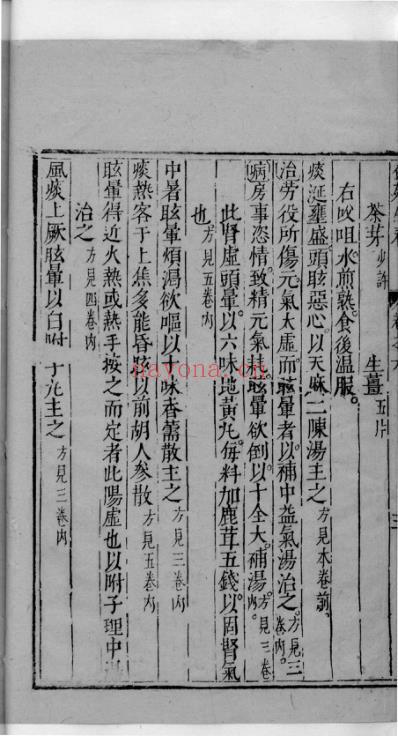 茶芽少許 生薑五片
右㕮咀水煎熟食後溫服。
痰涎壅盛頭眩惡心以天麻二陳湯主之方見本卷前、
治勞役所傷元氣大虛而眩暈者以補中益氣湯治之。方見三卷內。
病房事恣情致精元氣 眩暈欲倒以十全大補湯。方見三卷內。
此腎虛頭暈。以六味地黃丸。每料加鹿茸五錢。以固腎氣
也方見五卷內
中暑眩暈煩渴欲嘔以十味香薷散主之方見三卷內
痰熱客于上焦多能昏眩以前胡人參散方見五卷內
眩暈得近火熱或熱手按之而定者此陽虛也以附子理中
治之方見四卷內
風痰上厥眩暈以白附 于丸主之方見三卷內
卷之六
三
nayona.cn